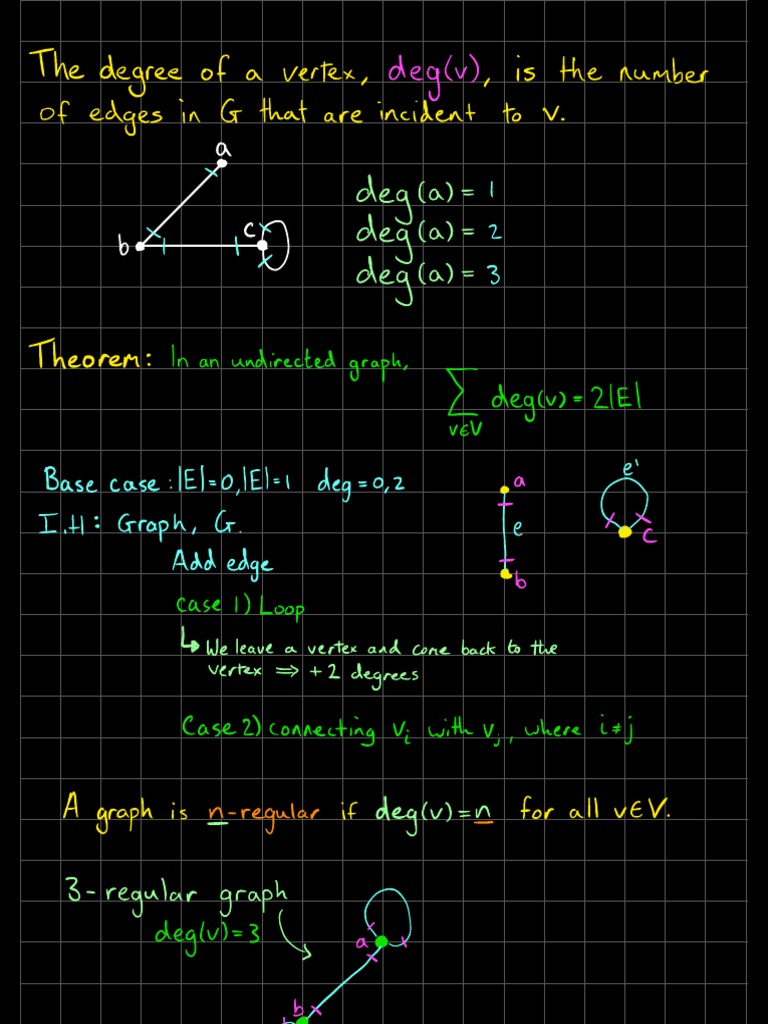 The degree of a vertex, deg(v), is the number
of edges in G that are incident to v.
a
b
c
deg(a) = 1
deg(a) = 2
deg(a) = 3
Theorem: In an undirected graph,
∑ deg(v) = 2|E|
v∈V
Base case: |E|=0, |E|=1 deg = 0,2
I.H: Graph, G.
Add edge
case 1) Loop
↳ We leave a vertex and come back to the
vertex ⇒ +2 degrees
Case 2) connecting vᵢ with vⱼ, where i≠j
a
e
b
e'
c
A graph is n-regular if deg(v)=n for all v∈V.
3-regular graph
deg(v)=3
a
b